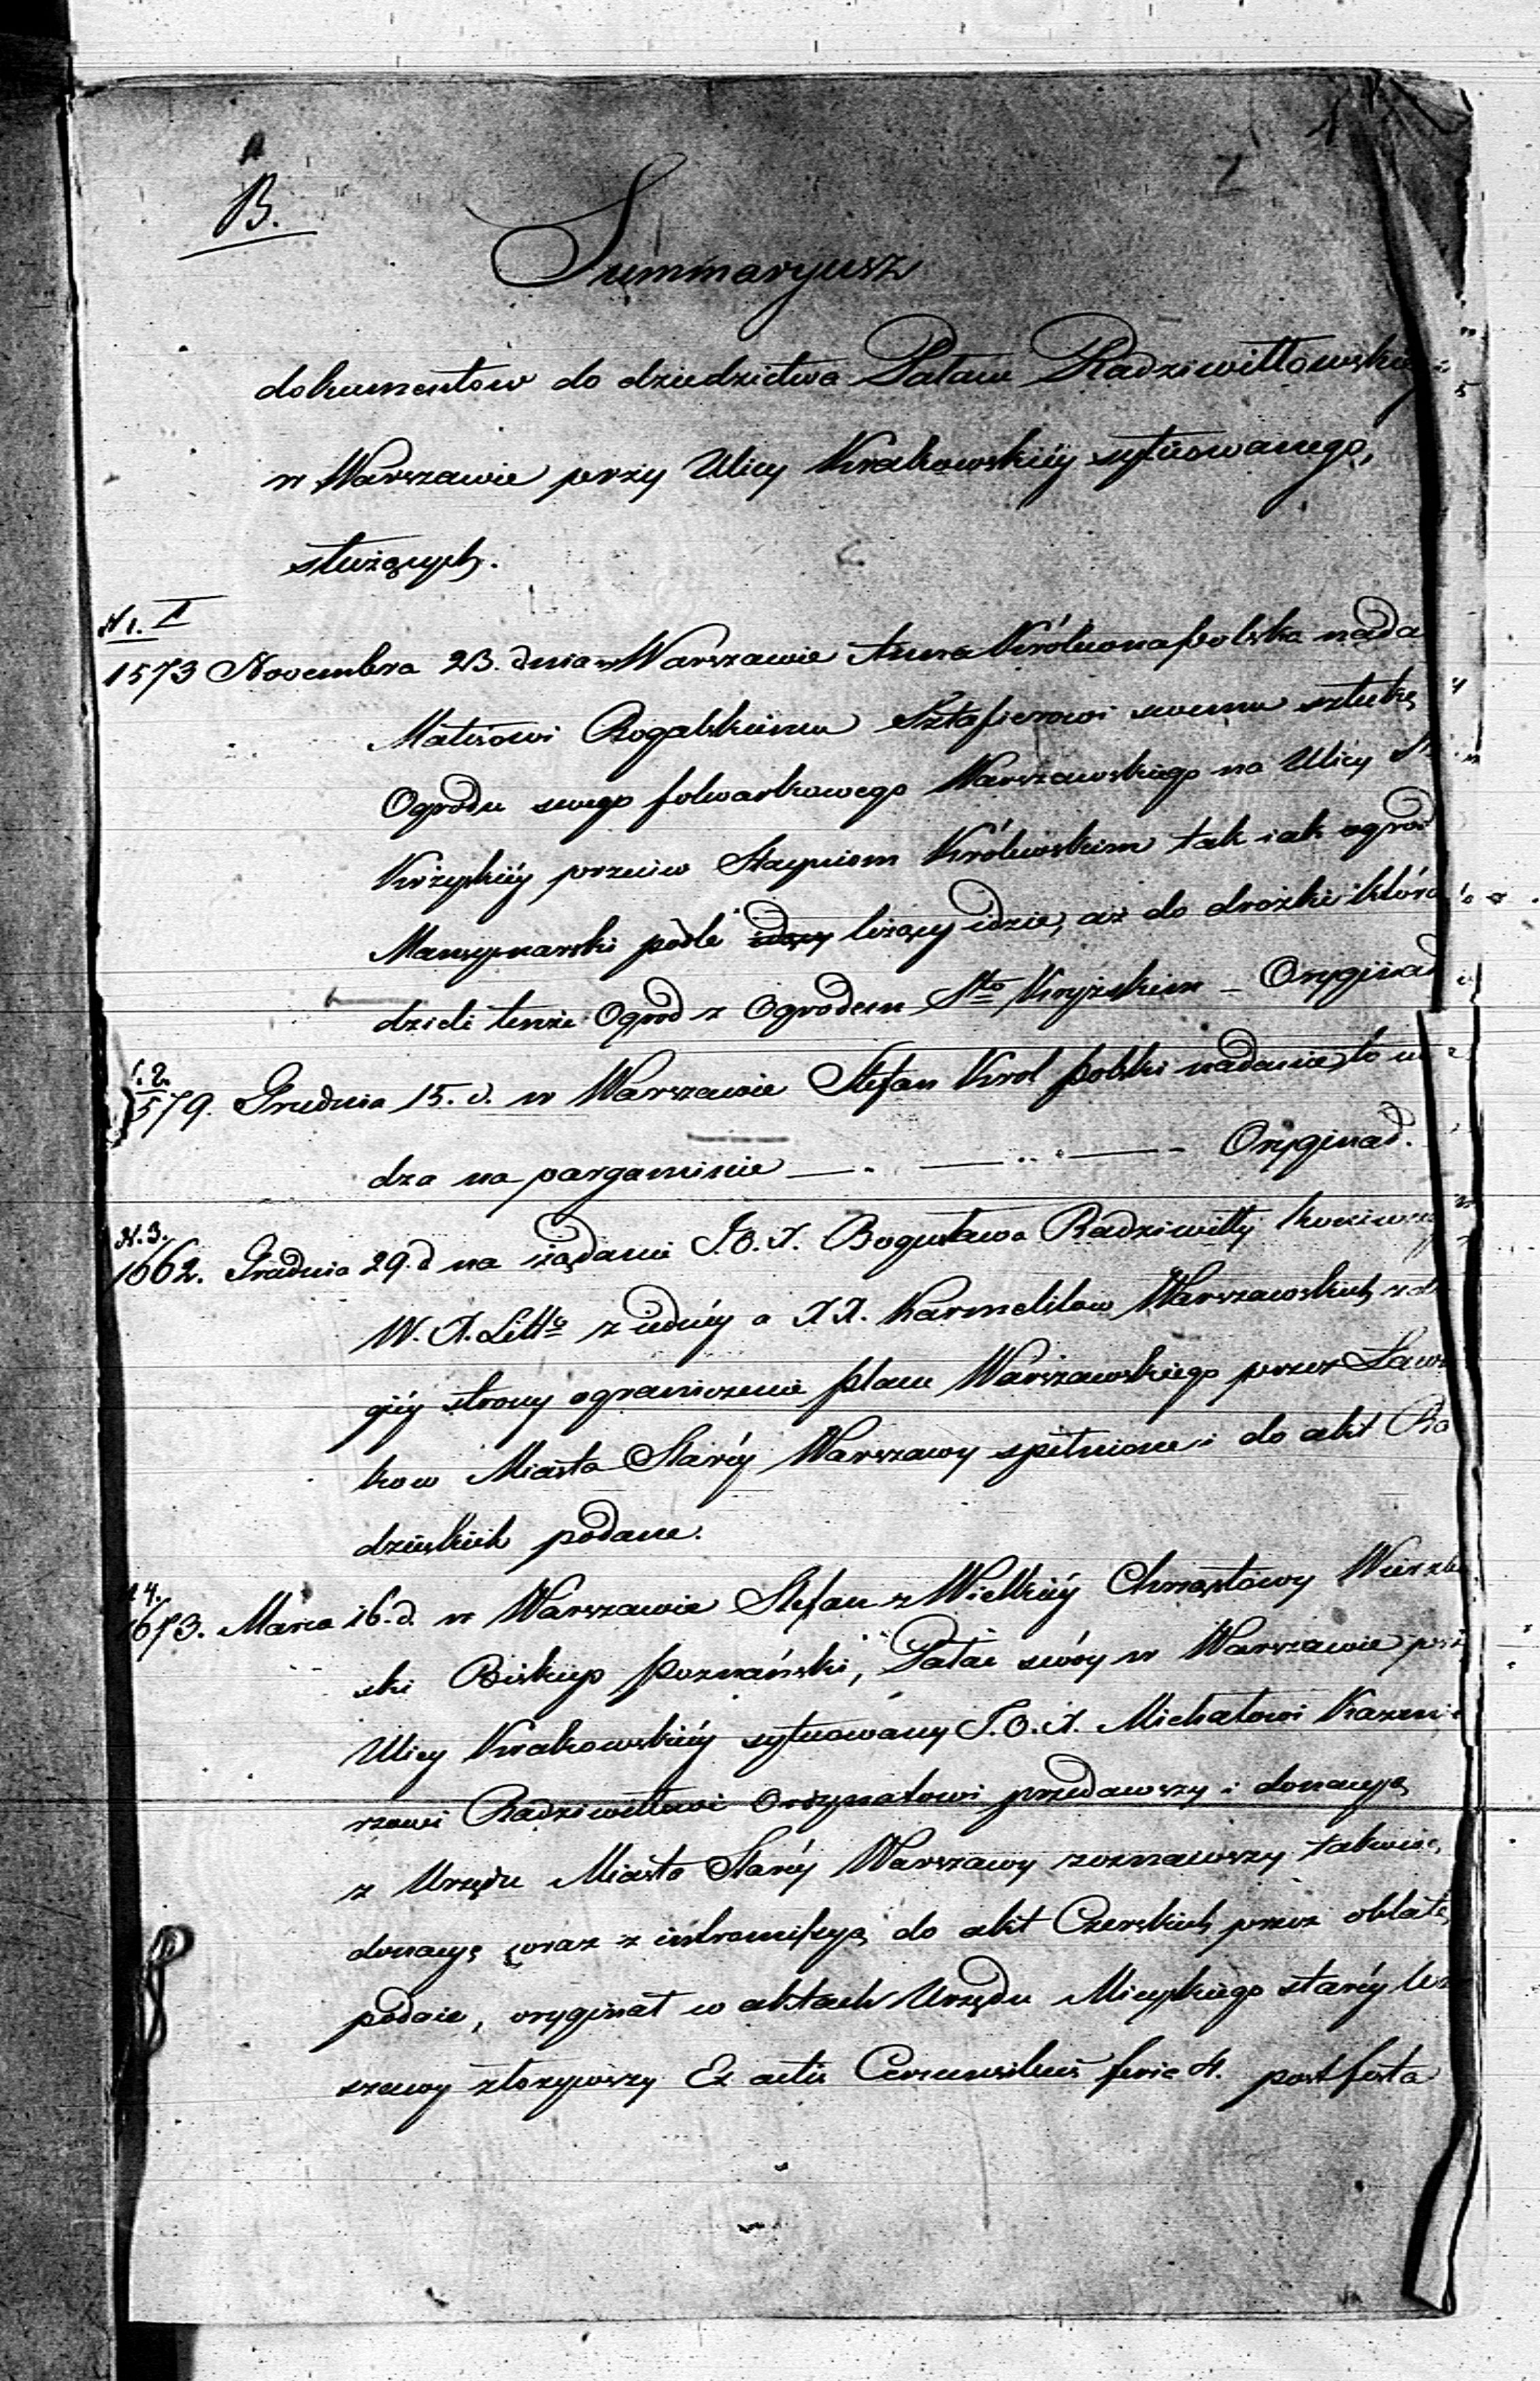 B.
Summaryusz
dokumentow do dziedzictwa Pałacu Radziwiłłowski
w Warszawie przy Ulicy Krakowskiéy sytuowanego,
służących.
N 1.
1573 Novembra 23. dnia w Warszawie Anna Królewna polska nada
Matusowi Rogalskiemu Sztafierowi swemu sztukę
Ogrodu swego folwarkowego Warszawskiego na Ulicy
Krzyskiéy przeciw Stayniom Królewskim tak iak ogrod
Mansyonarski podle leżący idzie, aż do drożki która
dzieli tenże Ogrod z Ogrodem Sto Krzyżskim – Oryginał
2.
1579. Grudnia 15. d. w Warszawie Stefan Krol polski nadanie to
dza na pargaminie — . — . . — Oryginał.
N. 3.
1662. Grudnia 29. d na żądanie J. O. X. Bogusława Radziwiłły Koniusz
W. X. Litto z iednéy a XX. Karmelitow Warszawskich z
giéy strony ograniczenie placu Warszawskiego przez Ław
kow Miasta Staréy Warszawy spełnione i do akt Ra
dzieckich podane.
4.
1673. Marca 16. d. w Warszawie Stefan z Wielkiéy Chrząstowy Wierzbo
ski Biskup Poznański, Pałac swóy w Warszawie przy
Ulicy Krakowskiéy sytuowany J. O. X. Michałowi Kazimi
rzowi Radziwiłłowi Ordynatowi przedawszy i donacyą
z Urzędu Miasta Staréy Warszawy zeznawszy takwie,
donacyę oraz z intromissyą do akt Czerskich przez oblatę
podaie, oryginał w aktach Urzędu Mieyskiego staréy
szawy złożywszy Ex actis Cernensibus feria 4. post festa